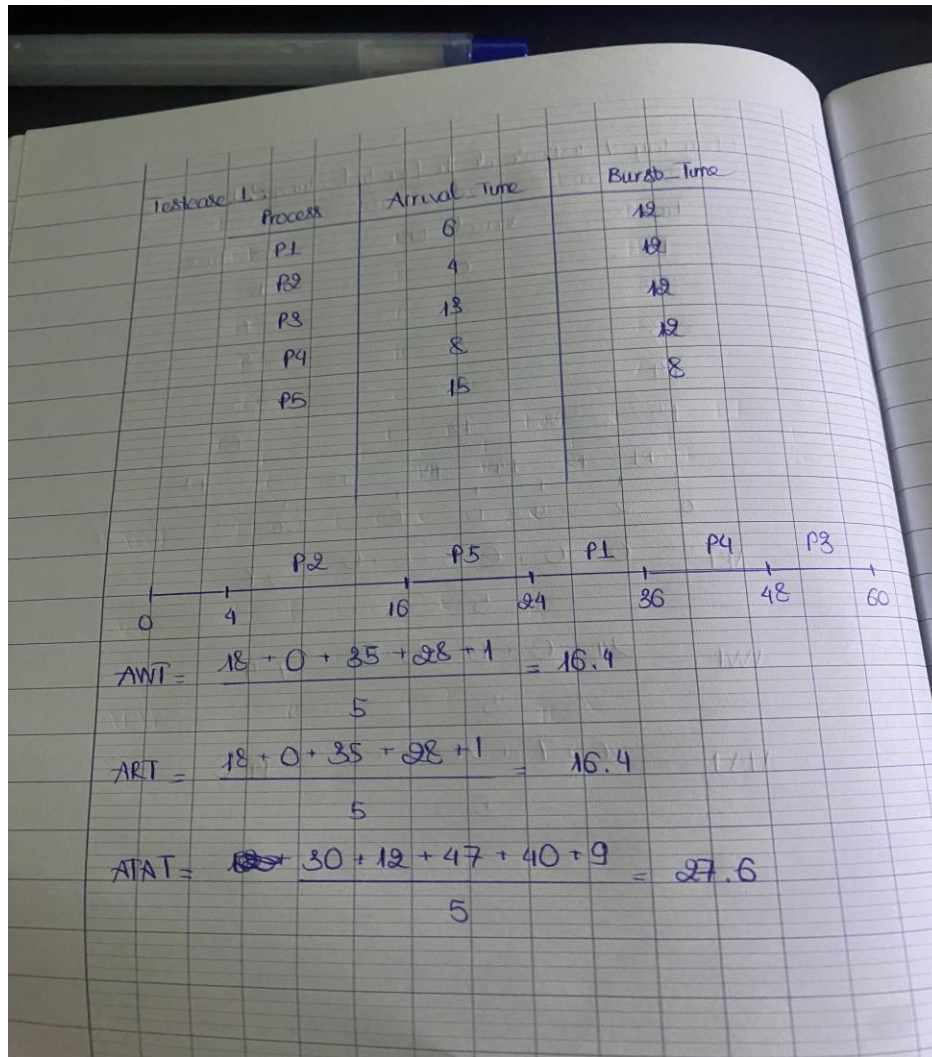 Testcase 1:
Process Arrival_Time Burst_Time
P1 6 12
P2 4 12
P3 13 12
P4 8 12
P5 15 8
P2 P5 P1 P4 P3
0 4 16 24 36 48 60
AWT = 18 + 0 + 35 + 28 + 1 / 5 = 16.4
ART = 18 + 0 + 35 + 28 + 1 / 5 = 16.4
ATAT = 30 + 12 + 47 + 40 + 9 / 5 = 27.6